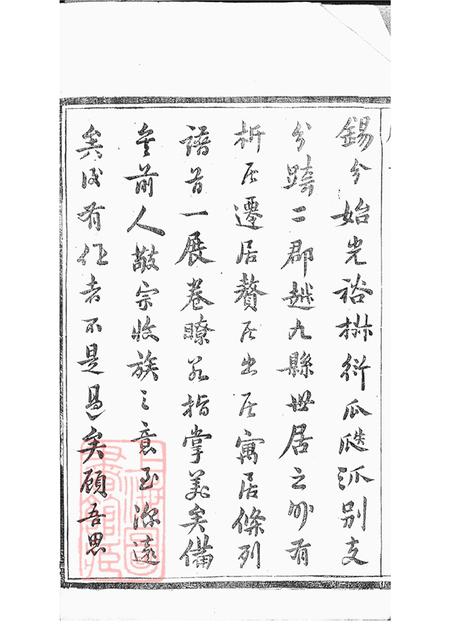 錫兮始光裕椒衍瓜瓞派別支
分跨二郡越九縣世居之外有
析居遷居贅居出居寓居條列
譜首一展卷瞭若指掌美矣備
矣前人敬宗收族之意至深遠
矣後有作者不是過矣顧吾思
上海圖書館藏